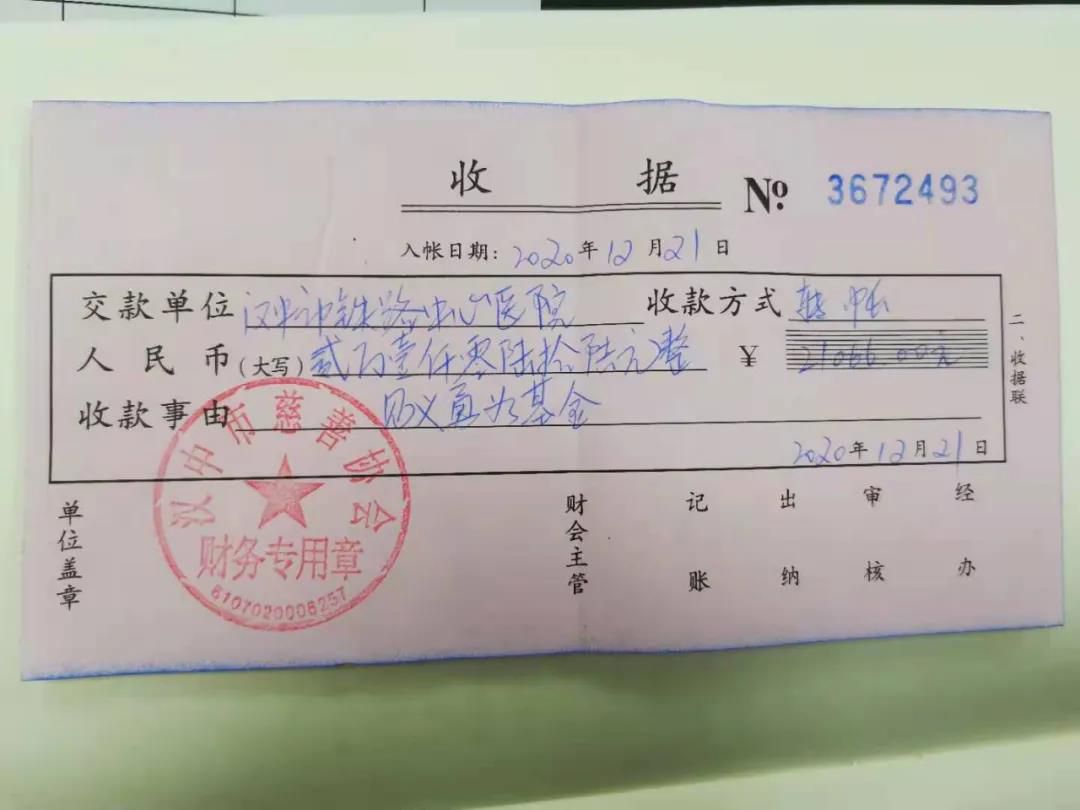 收 据 № 3672493
入帐日期: 2020年12月21日
交款单位 汉中市铁路中心医院 收款方式 转帐
人民币(大写) 贰万壹仟零陆拾陆元整 ¥ 21066.00元
收款事由 见义勇为基金
2020年12月21日
二、收据联
单位盖章 财会主管 记账 出纳 审核 经办
汉中市慈善协会
财务专用章
6107020006257